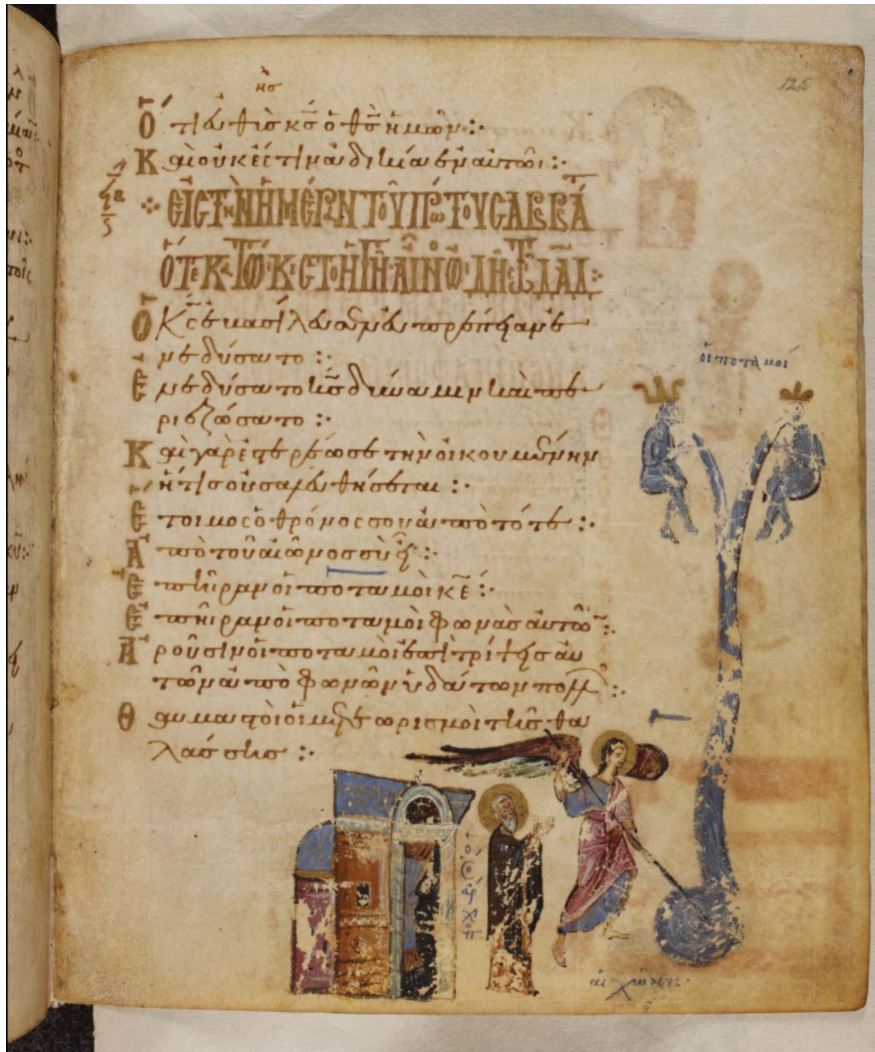 ης
Ὅτι εὐθὶς κ̅ς̅ ὁ θ̅ς̅ ἡμῶν:·
Καὶ οὐκ ἔστιν ἀδικία ἐν αὐτῶι:·
ϟβ
ΕΙϹ ΤΗΝ ΗΜΕΡΑΝ ΤΟΥ ΠΡΟ ΤΟΥ ϹΑΒΒΑΤ
ΟΤΕ ΚΑΤΩΚΙϹΤΟ Η ΓΗ ΑΙΝΟϹ ΩΔΗϹ Τ ΔΑΔ:·
Ὁ κ̅ς̅ ἐβασίλευσεν εὐπρέπειαν ἐ
νεδύσατο :·
Ἐνεδύσατο κ̅ς̅ δύναμιν καὶ πε
ριεζώσατο :·
Καὶ γὰρ ἐστερέωσε τὴν οἰκουμένην
ἥτις οὐ σαλευθήσεται :·
Ἕτοιμος ὁ θρόνος σου ἀπὸ τότε :·
Ἀπὸ τοῦ αἰῶνος σὺ εἶ :·
Ἐπῆραν οἱ ποταμοὶ κ̅ε̅ :·
Ἐπῆραν οἱ ποταμοὶ φωνὰς αὐτῶν :·
Ἀροῦσιν οἱ ποταμοὶ ἐπιτρίψεις αὐ
τῶν ἀπὸ φωνῶν ὑδάτων πολλ :·
Θαυμαστοὶ οἱ μετεωρισμοὶ τῆς θα
λάσσης :·
οἱ ποταμοί
125